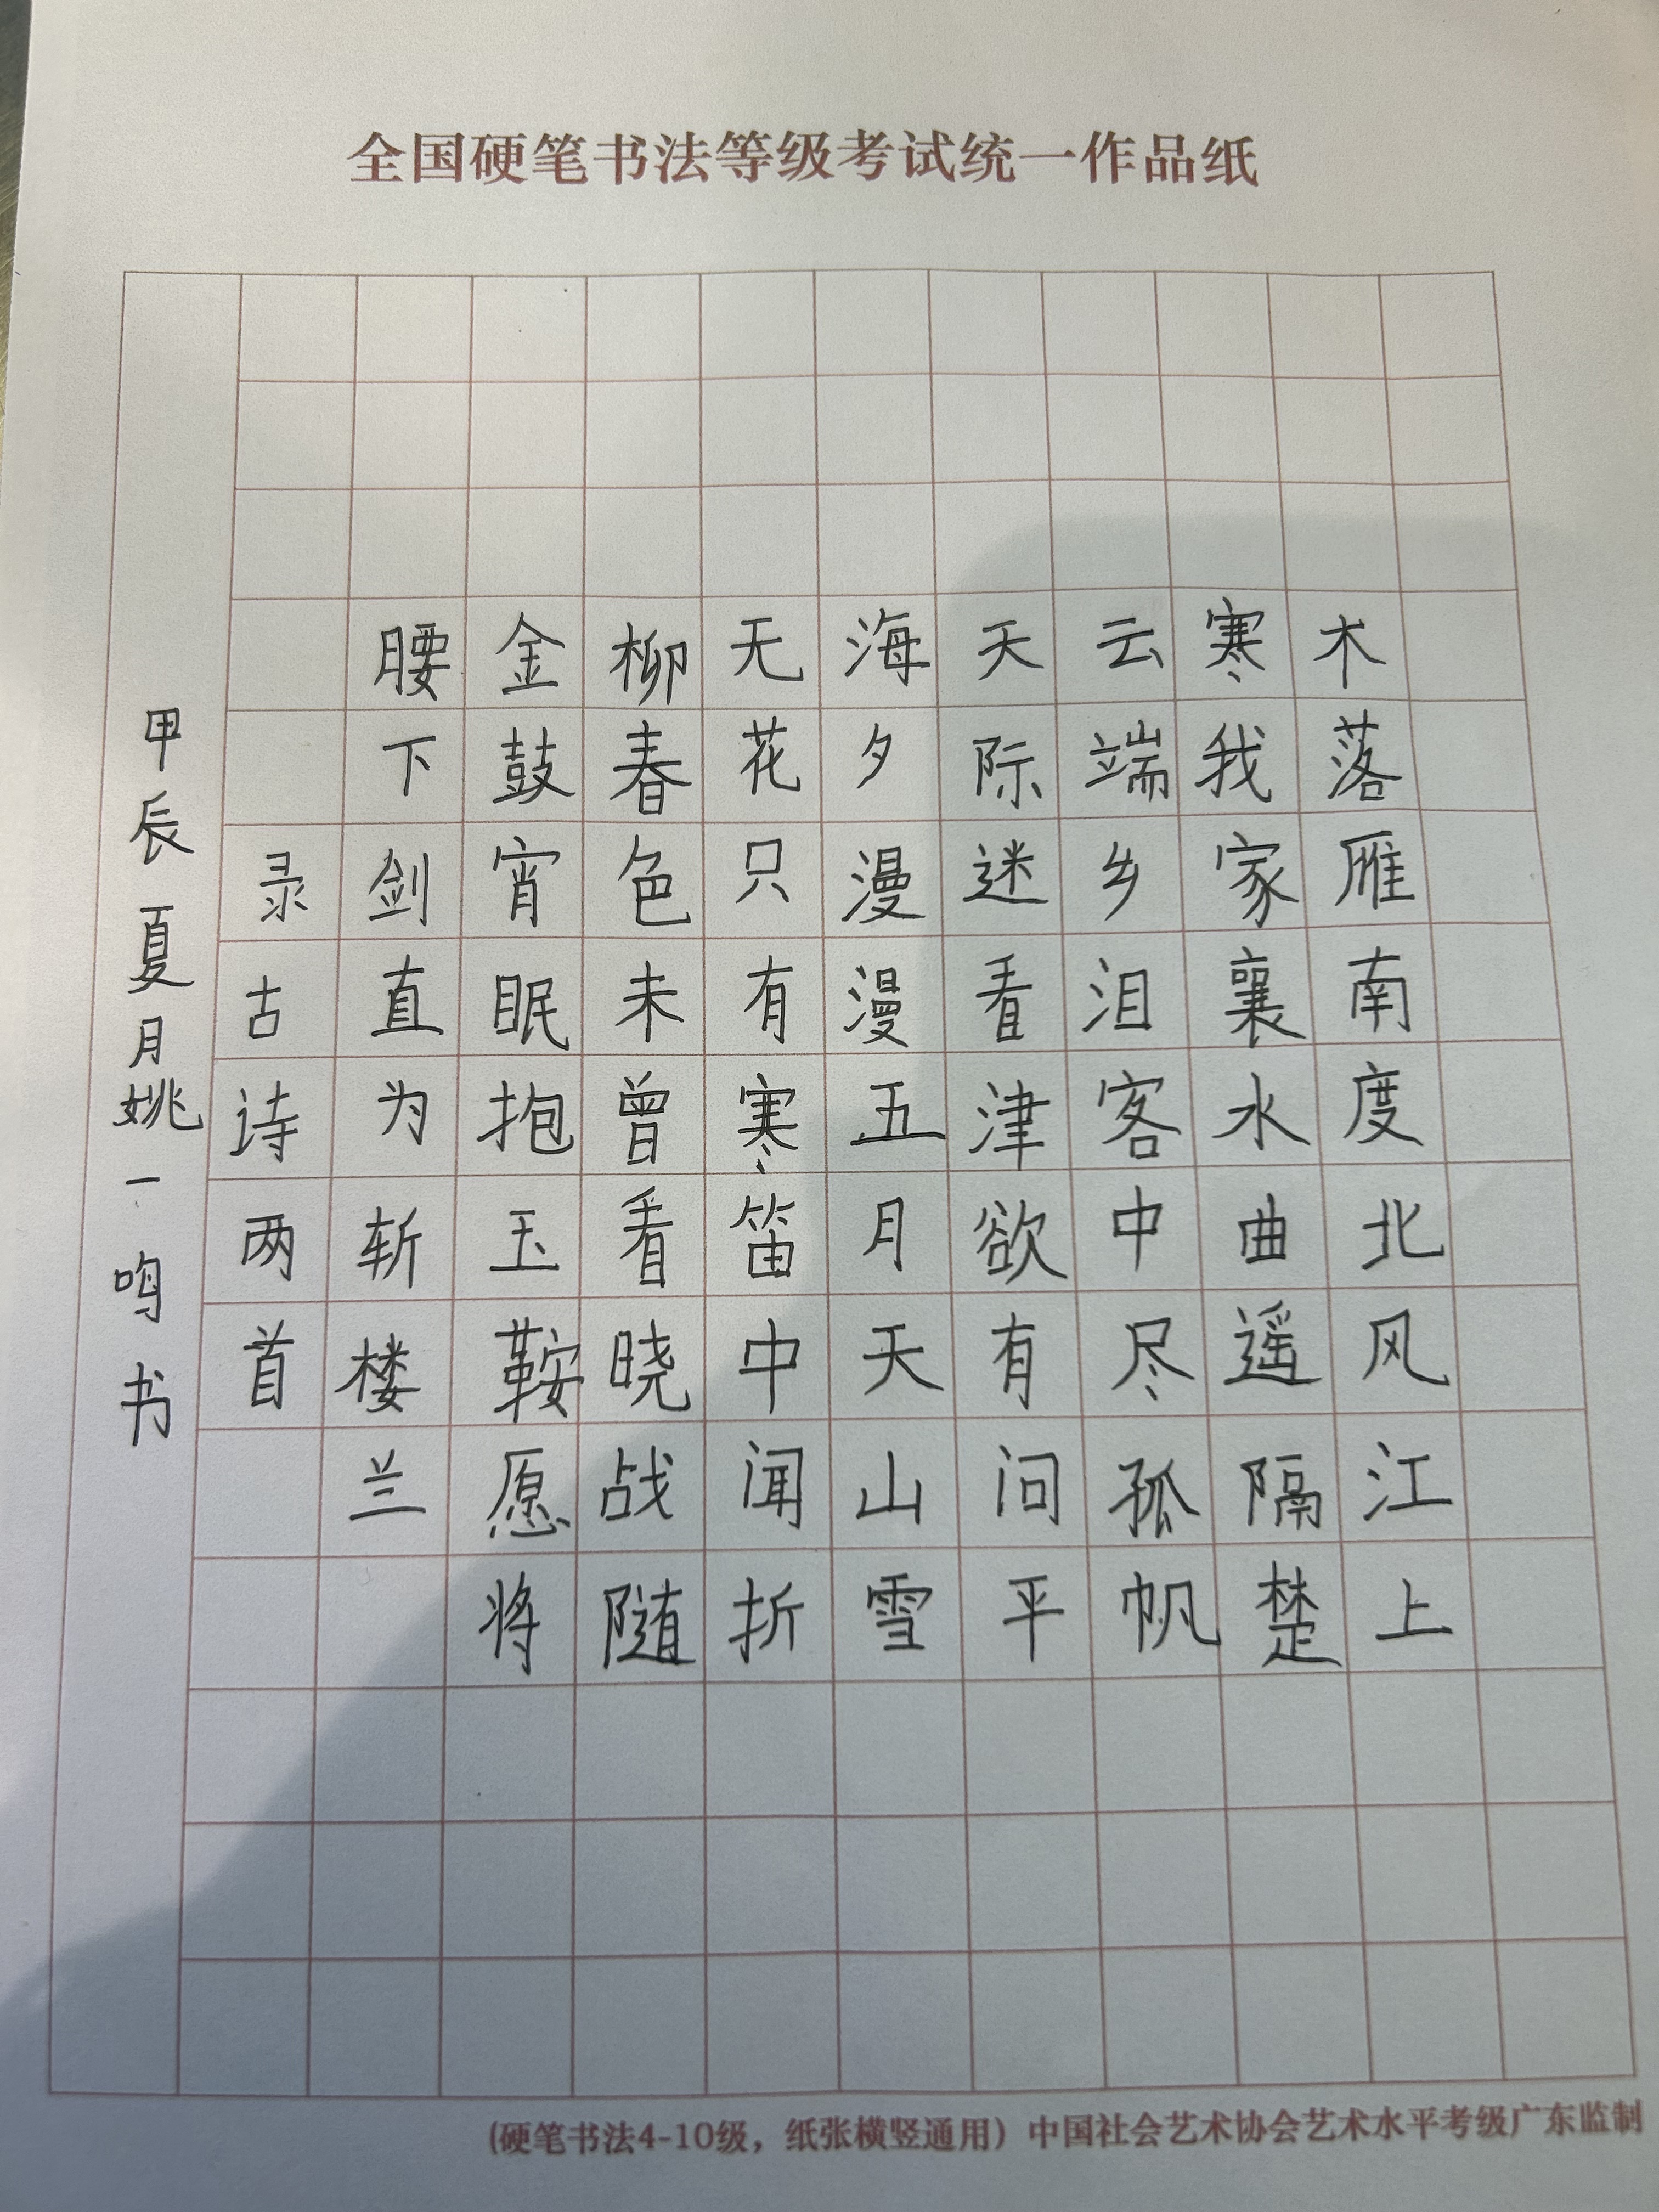 全国硬笔书法等级考试统一作品纸
木落雁南度北风江上
寒我家襄水曲遥隔楚
云端乡泪客中尽孤帆
天际迷看津欲有问平
海夕漫漫五月天山雪
无花只有寒笛中闻折
柳春色未曾看晓战随
金鼓宵眠抱玉鞍愿将
腰下剑直为斩楼兰
录古诗两首
甲辰夏月姚一鸣书
(硬笔书法4-10级，纸张横竖通用) 中国社会艺术协会艺术水平考级广东监制